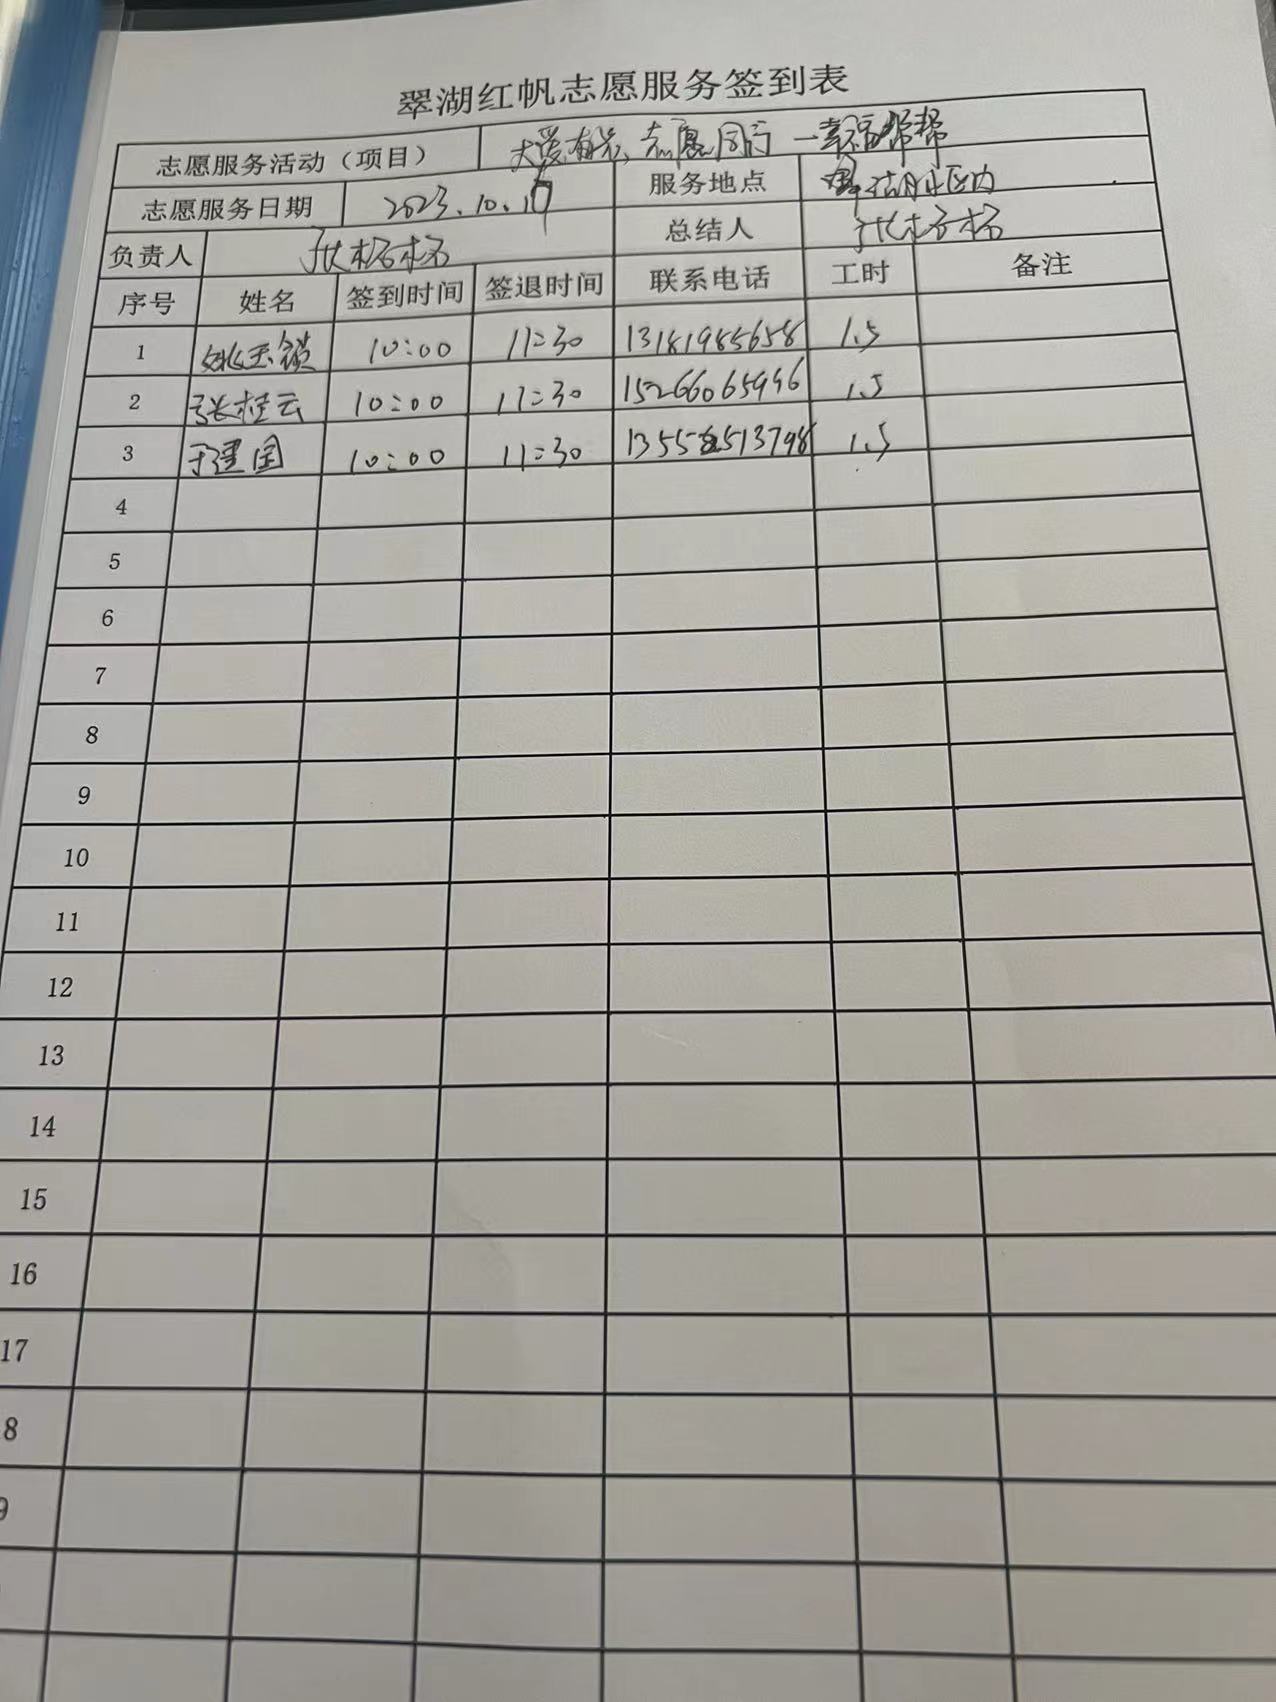 翠湖红帆志愿服务签到表
志愿服务活动（项目） 大爱有光、志愿同行 一幸福帮帮
志愿服务日期 2023.10. 服务地点 湖社区内
负责人 张杨杨 总结人 张杨杨
序号 姓名 签到时间 签退时间 联系电话 工时 备注
1 姚玉锁 10:00 11:30 13181985658 1.5
2 张桂云 10:00 11:30 15266065996 1.5
3 于建国 10:00 11:30 1.5
4
5
6
7
8
9
10
11
12
13
14
15
16
17
8
9